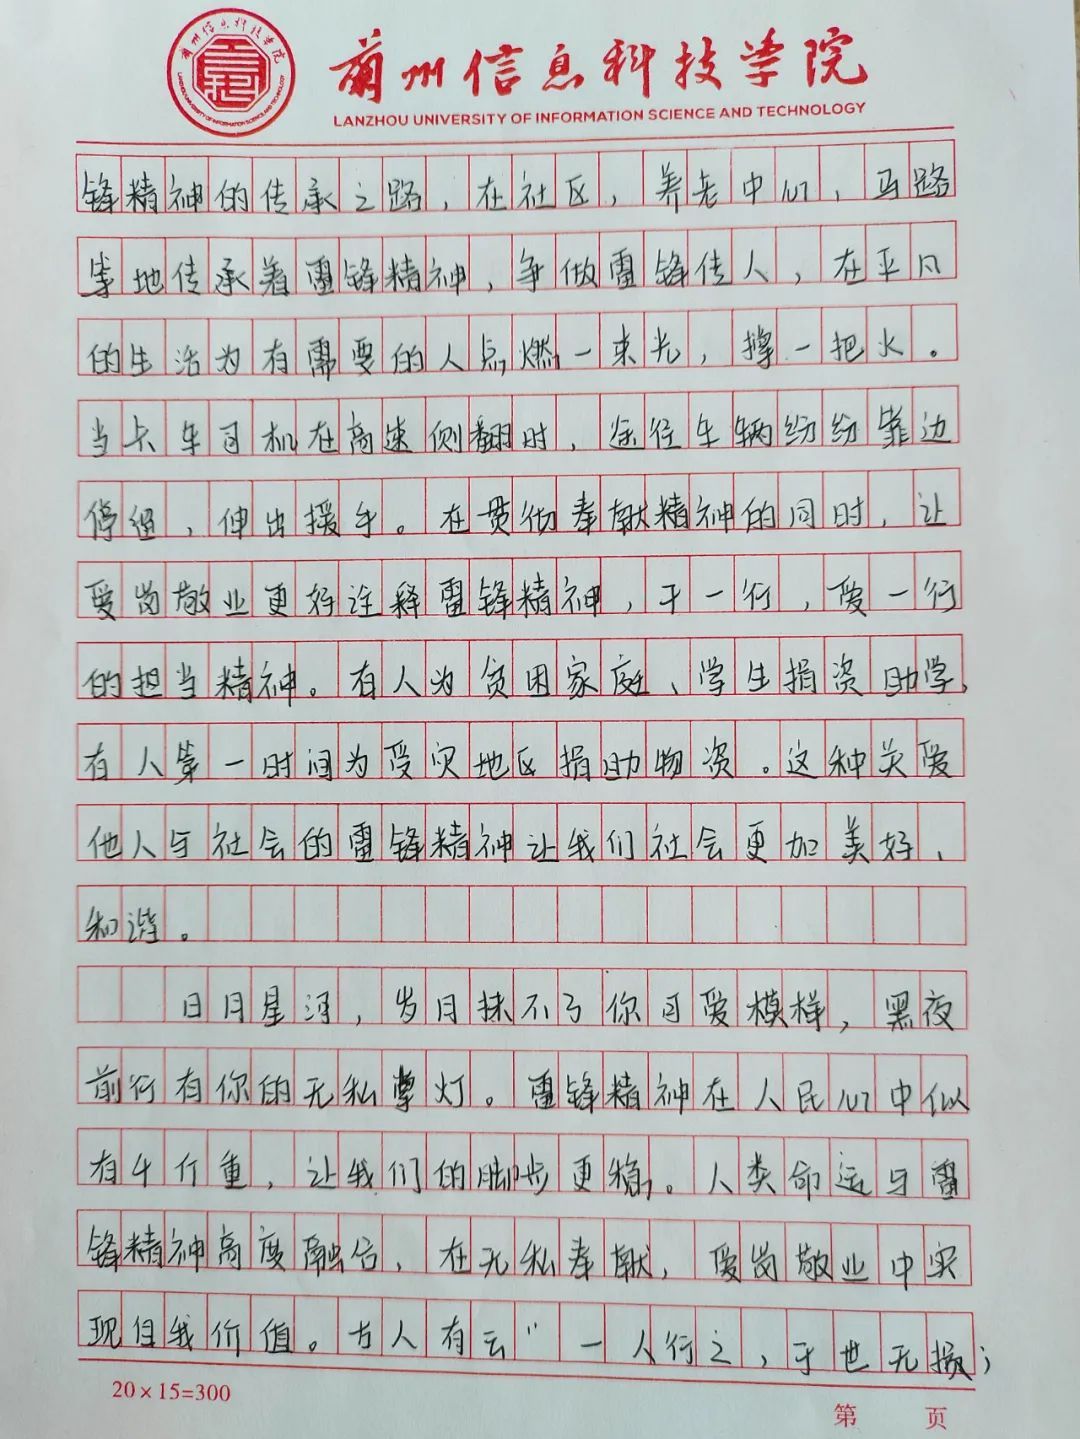 兰州信息科技学院
LANZHOU UNIVERSITY OF INFORMATION SCIENCE AND TECHNOLOGY
锋精神的传承之路，在社区，养老中心，马路
等地传承着雷锋精神，争做雷锋传人，在平凡
的生活为有需要的人点燃一束光，撑一把火。
当卡车司机在高速侧翻时，途径车辆纷纷靠边
停组，伸出援手。在贯彻奉献精神的同时，让
爱岗敬业更好诠释雷锋精神，干一行，爱一行
的担当精神。有人为贫困家庭、学生捐资助学，
有人第一时间为受灾地区捐助物资。这种关爱
他人与社会的雷锋精神让我们社会更加美好、
和谐。
日月星河，岁月抹不了你可爱模样，黑夜
前行有你的无私掌灯。雷锋精神在人民心中似
有千斤重，让我们的脚步更稳。人类命运与雷
锋精神高度融合，在无私奉献，爱岗敬业中实
现自我价值。古人有云“一人行之，于世无损；
20×15=300
第 页